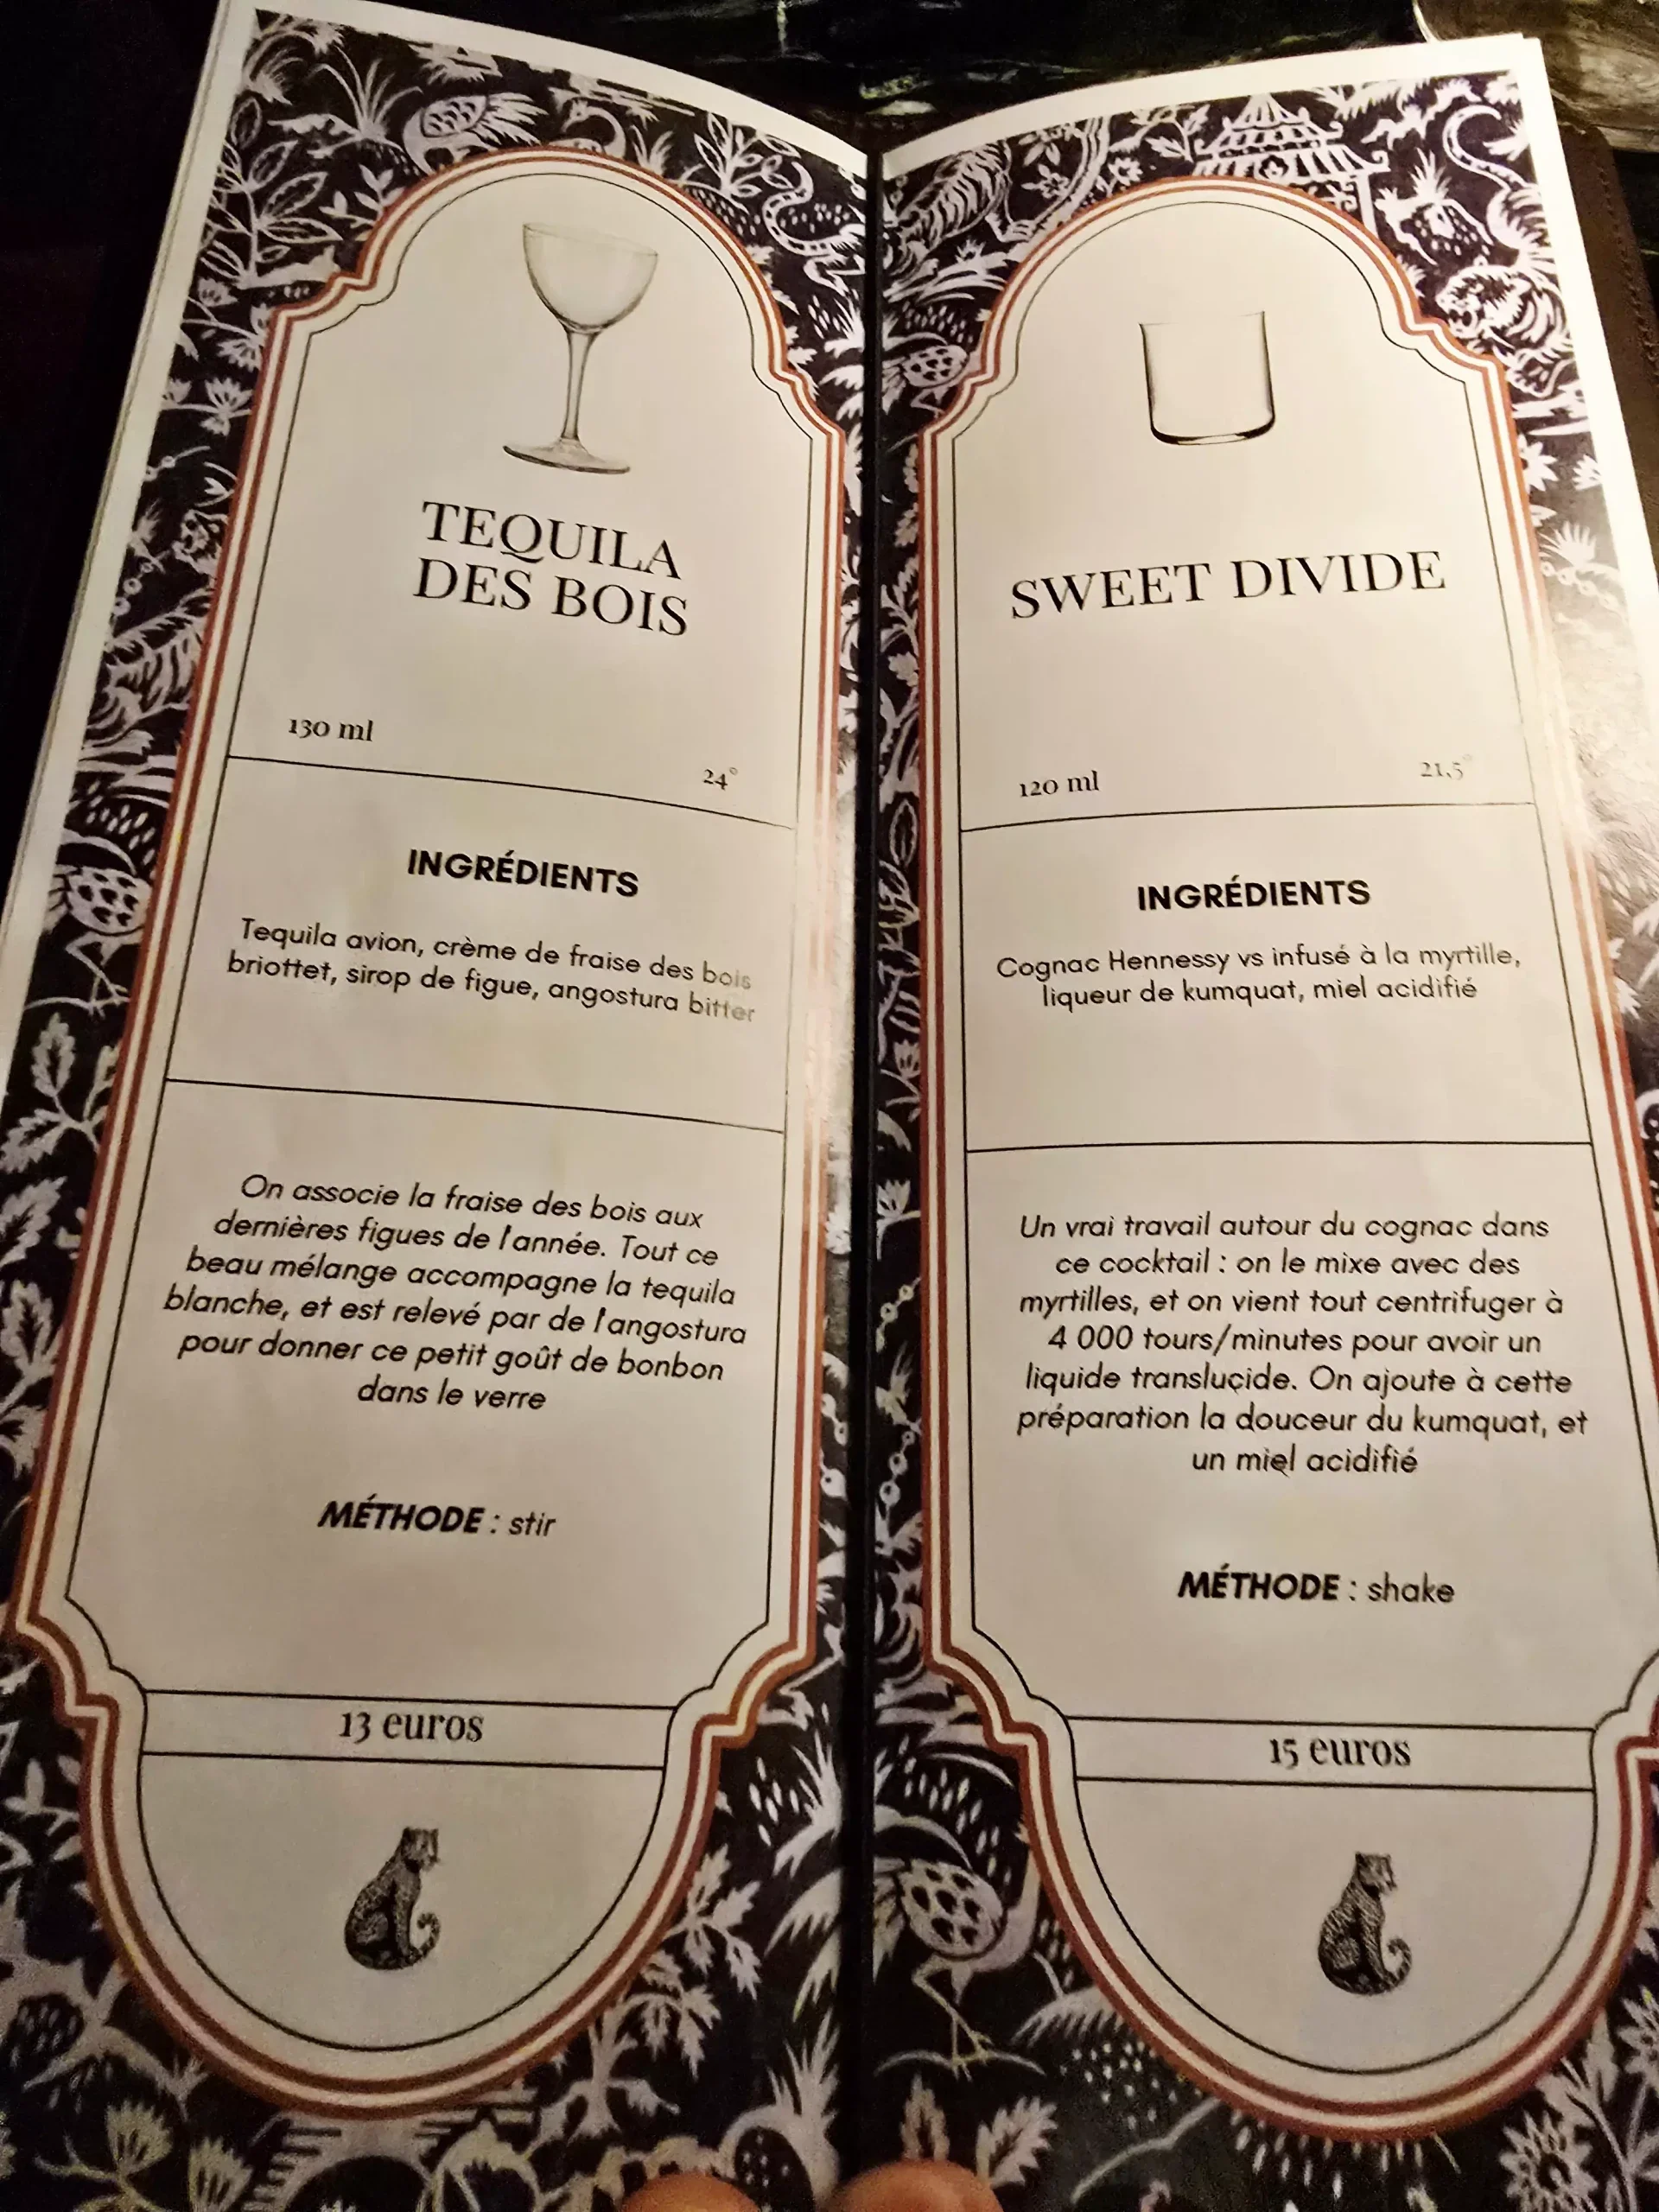 TEQUILA
DES BOIS
130 ml
24°
INGRÉDIENTS
Tequila avion, crème de fraise des bois
briottet, sirop de figue, angostura bitter
On associe la fraise des bois aux
dernières figues de l'année. Tout ce
beau mélange accompagne la tequila
blanche, et est relevé par de l'angostura
pour donner ce petit goût de bonbon
dans le verre
MÉTHODE : stir
13 euros
SWEET DIVIDE
120 ml
21,5°
INGRÉDIENTS
Cognac Hennessy vs infusé à la myrtille,
liqueur de kumquat, miel acidifié
Un vrai travail autour du cognac dans
ce cocktail : on le mixe avec des
myrtilles, et on vient tout centrifuger à
4 000 tours/minutes pour avoir un
liquide translucide. On ajoute à cette
préparation la douceur du kumquat, et
un miel acidifié
MÉTHODE : shake
15 euros